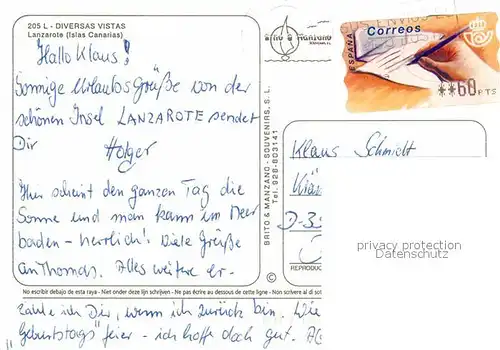 205 L - DIVERSAS VISTAS
Lanzarote (Islas Canarias)
Hallo Klaus!
Sonnige Urlaubsgrüße von der
schönen Insel LANZAROTE sendet
Dir Holger
Hier scheint den ganzen Tag die
Sonne und man kann im Meer
baden - herrlich! Viele Grüße
an Thomas. Alles weitere er-
No escribir debajo de esta raya - Niet onder deze lijn schrijven - Ne pas écrire au dessous de cette ligne - Non scrivere al di sot
zähle ich Dir, wenn ich zurück bin. Wie
"Geburtstags"feier - ich hoffe doch gut.
BRITO & MANZANO - SOUVENIRS, S.L.
Tel. 928-803141
©
ESPAÑA
Correos
**60 PTS
Klaus Schmidt
D-3
privacy protection
Datenschutz
REPRODUC